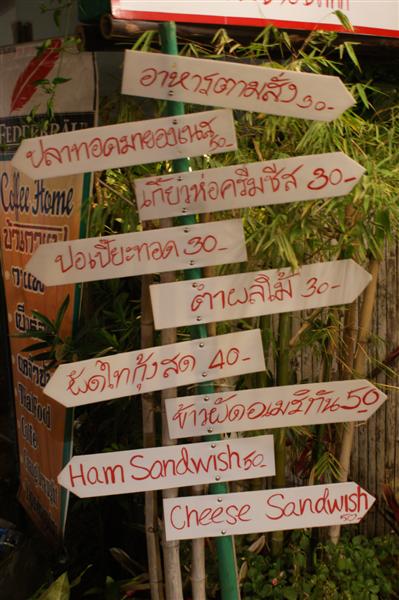 อาหารตามสั่ง 30-
ปลาทอดมายองเนส 50-
เกี๊ยวห่อครีมชีส 30-
ปอเปี๊ยะทอด 30-
ตำผลไม้ 30-
ผัดไทกุ้งสด 40-
ข้าวผัดอเมริกัน 50
Ham Sandwish 50-
Cheese Sandwish 50-
Coffee Home